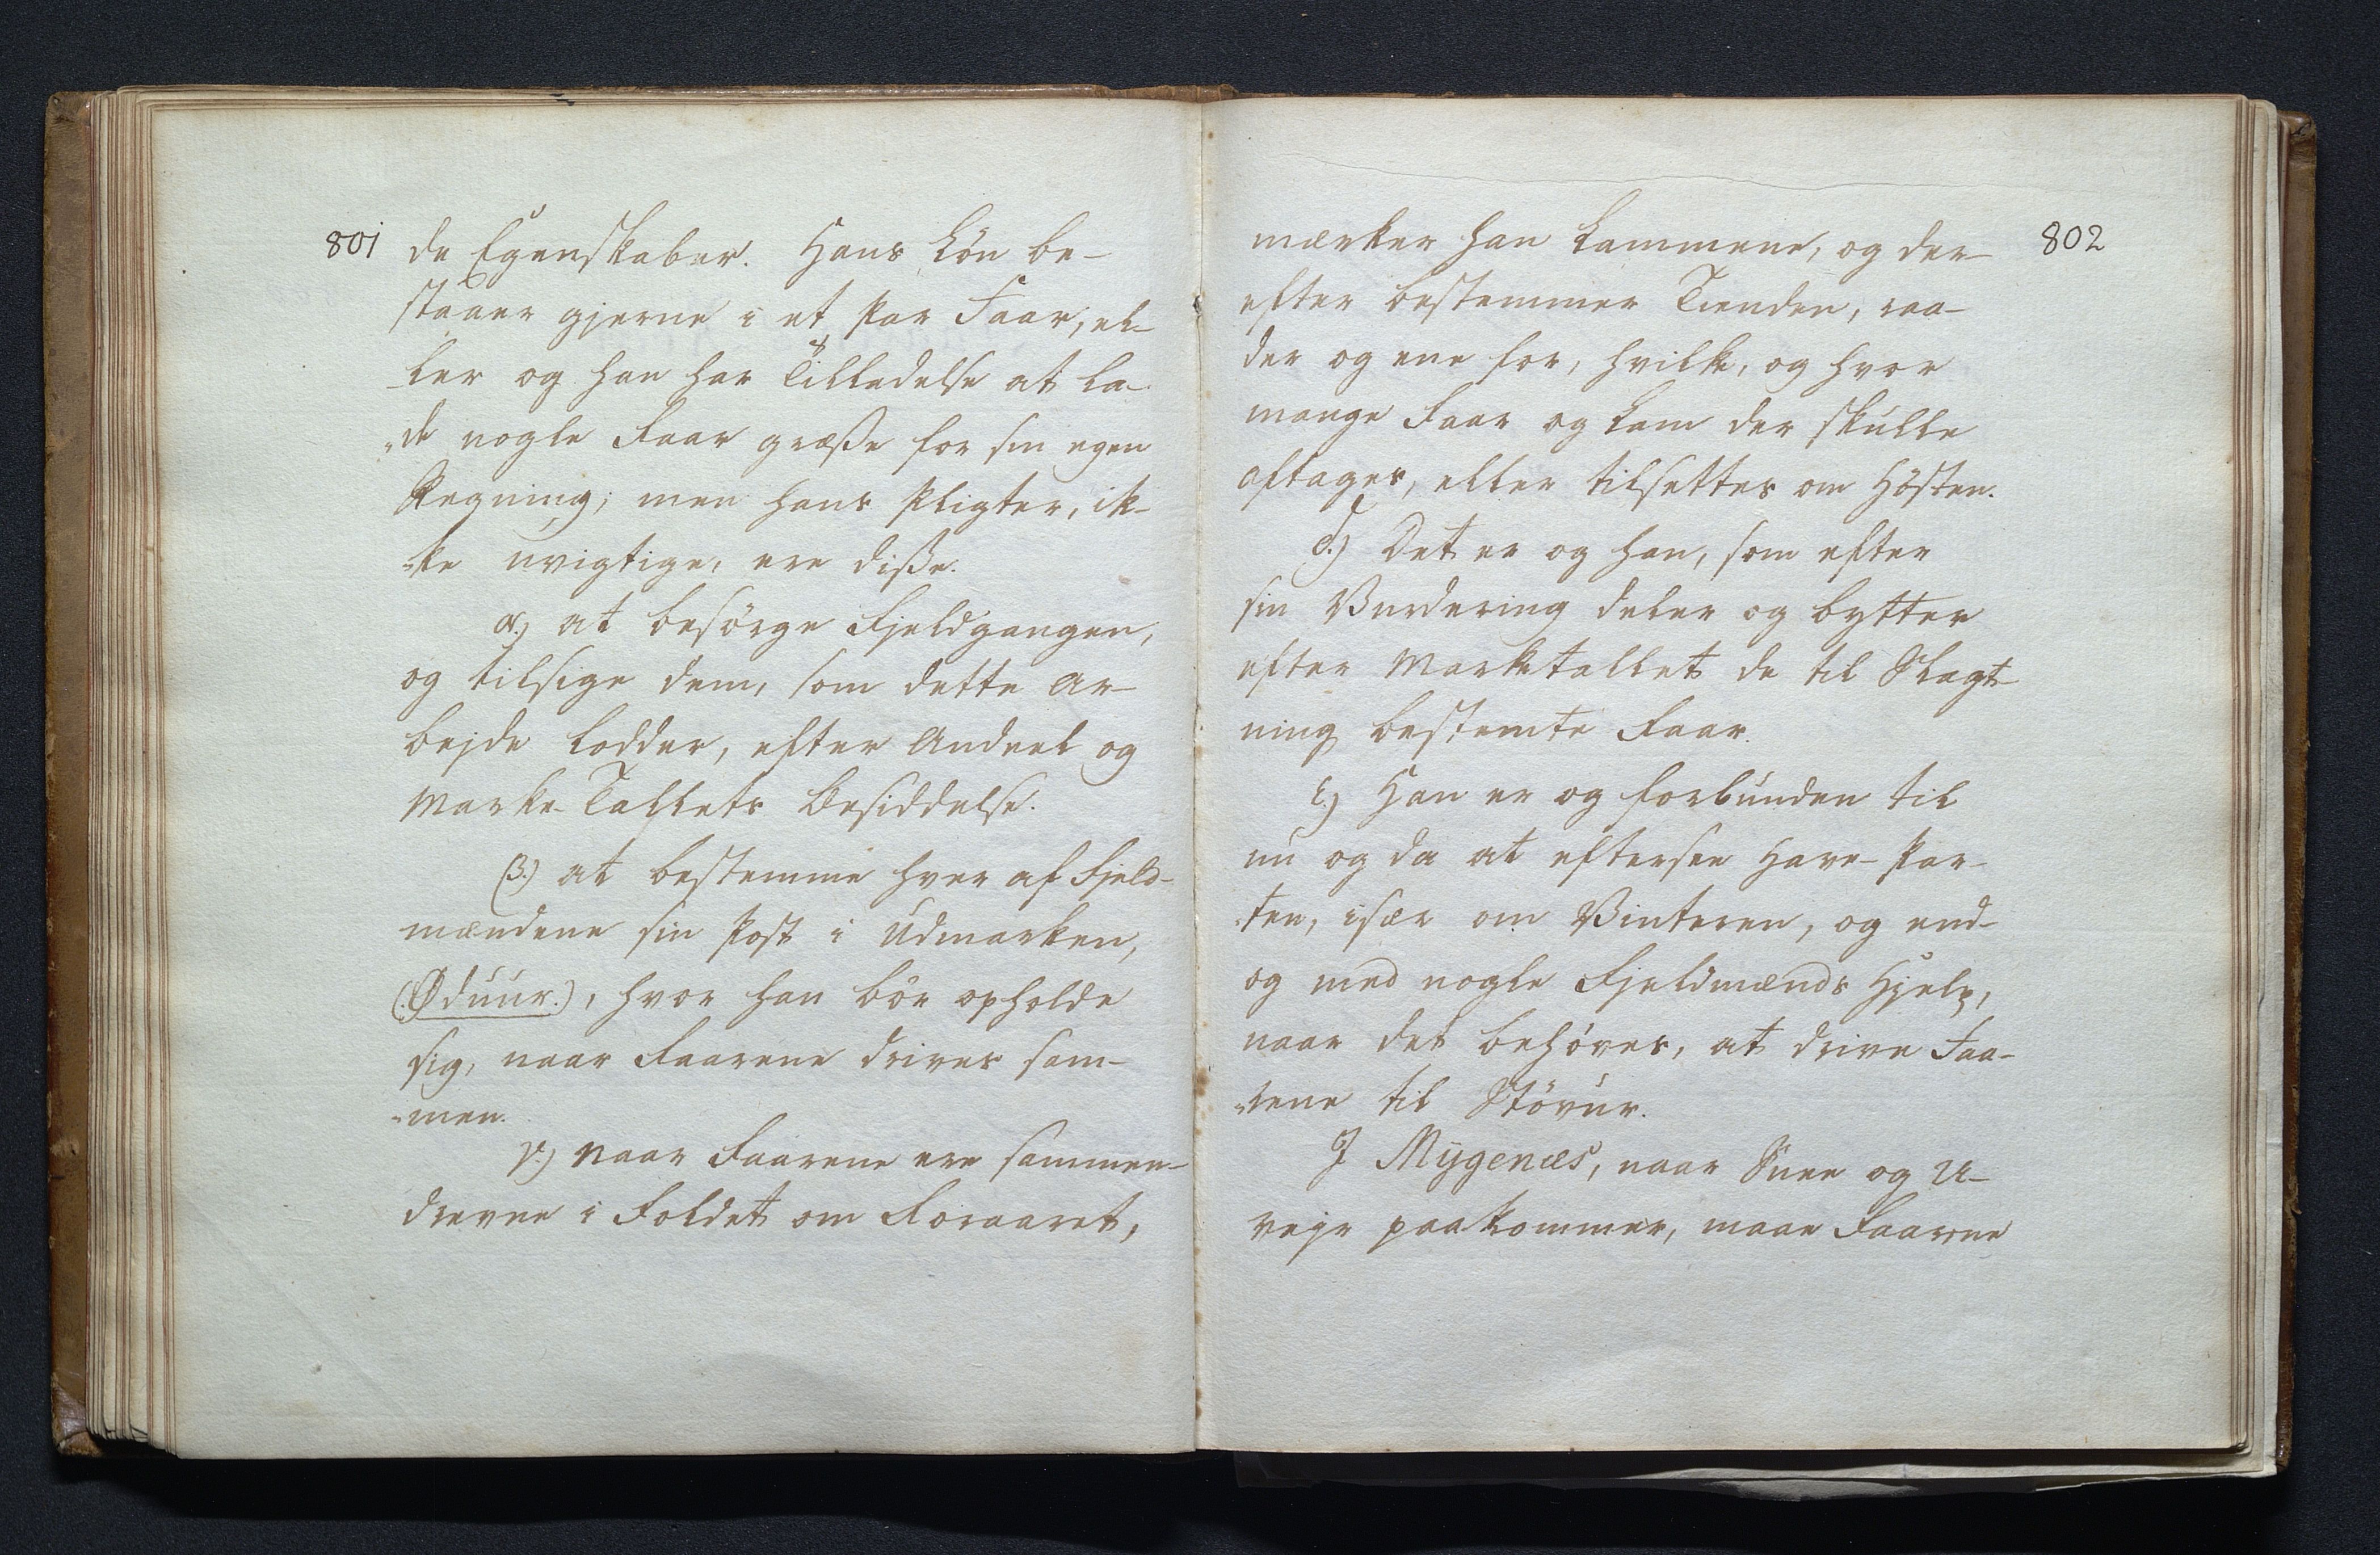 801
de Egenskaber. Hans Lön be-
staaer gjerne i et Par Faar, el-
ler og han har Tilladelse at la-
„de nogle Faar græsse for sin egen
Regning; men hans Pligter, ik-
„ke uvigtige, ere disse.
α.) at besörge Fjeldgangen,
og tilsige dem, som dette Ar-
bejde lodder, efter Andeel og
Marke-Tallets Besiddelse.
β.) at bestemme hver af Fjeld-
mændene sin Post i Udmarken,
(:Øduur:), hvor han bör opholde
sig, naar Faarene drives sam-
„men.
γ.) Naar Faarene ere sammen-
drevne i Foldet om Foraaret,
802
mærker han Lammene, og der-
efter bestemmer Tienden, raa-
der og ene for, hvilke, og hvor
mange Faar og Lam der skulle
aftages, eller tilsettes om Hösten.
δ.) Det er og han, som efter
sin Vurdering deler og bytter
efter Marketallet de til Slagt-
ning bestemte Faar.
ε.) Han er og forbunden til
nu og da at eftersee Have-Par-
„ten, især om Vinteren, og end-
og med nogle Fjeldmænds Hjelp,
naar det behöves, at drive Faa-
„rene til Stövur.
I Mygenæs, naar Snee og U-
vejr paakommer, maae Faarene